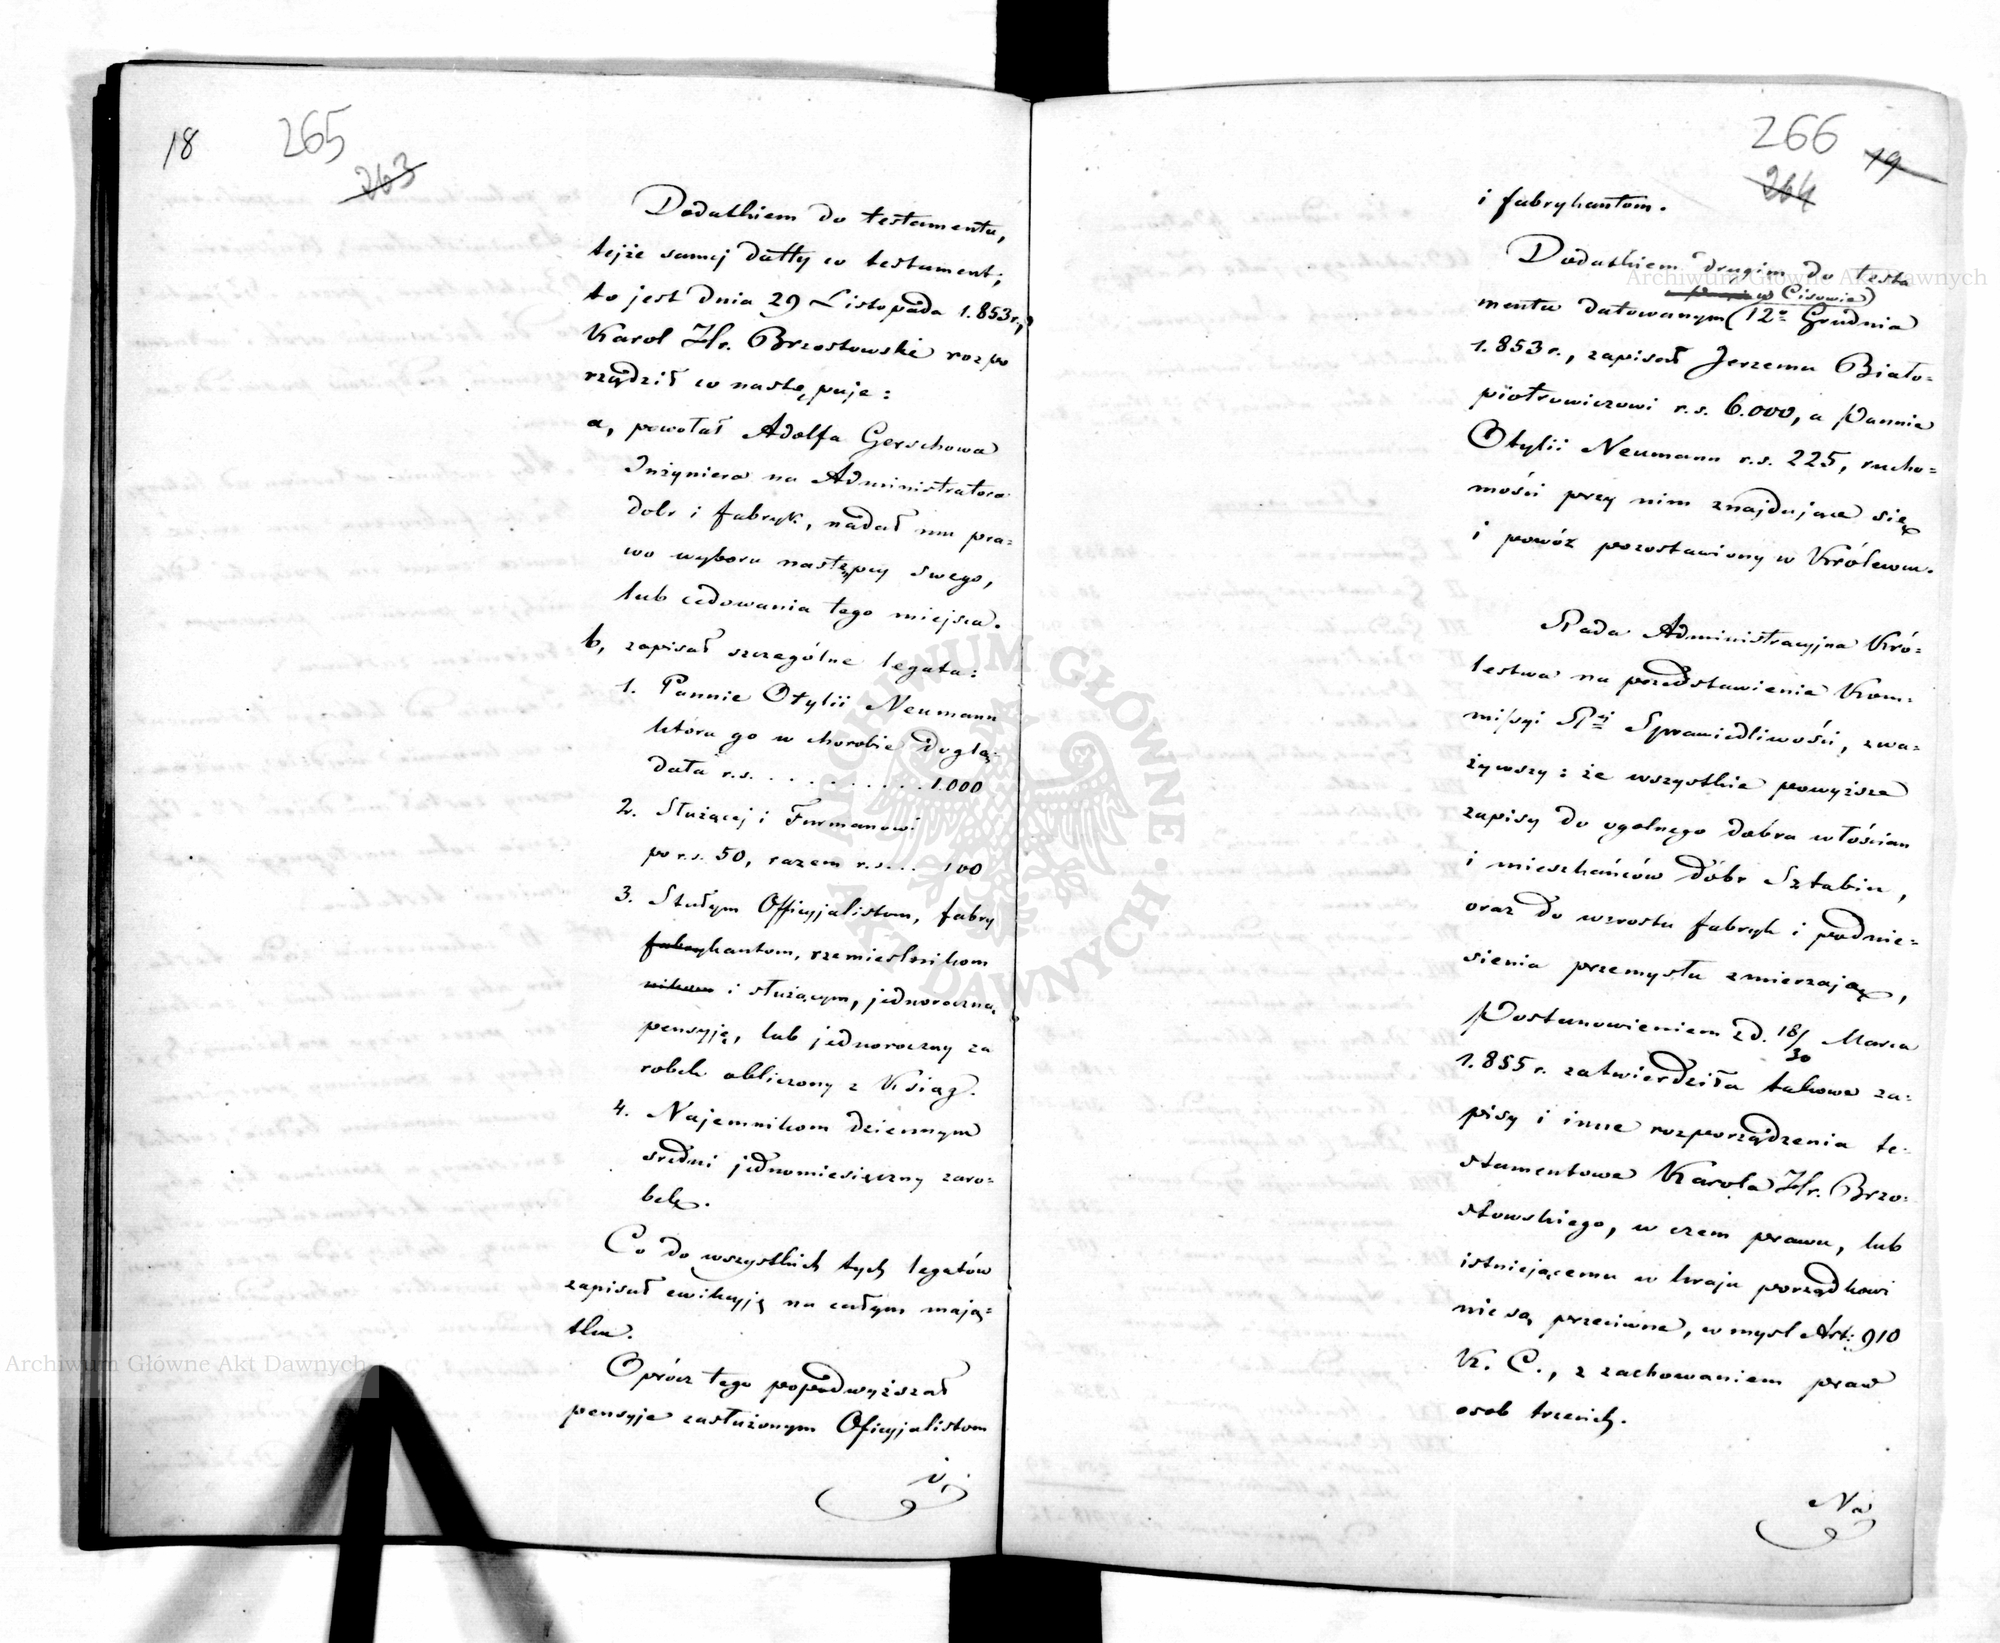 18
265
263
Dodatkiem do testamentu,
tejże samej datty co testament;
to jest dnia 29 Listopada 1.853 r.,
Karol Hr. Brzostowski rozpo
rządził co następuje:
a, powołał Adolfa Gerschowa
Inżyniera na Administratora
dobr i fabryk, nadał mu pra=
wo wyboru następcy swego,
lub cedowania tego miejsca.
b, zapisał szczególne legata:
1. Pannie Otylii Neumann
która go w chorobie doglą=
dała r.s. . . . . . . . . . 1.000
2. Służącej i Furmanowi
po r.s. 50, razem r.s. . . . 100
3. Stałym Officyjalistom, fabry
fabrykantom, rzemieslnikom
nikom i służącym, jednoroczną
pensyję, lub jednoroczny za
robek obliczony z Ksiąg.
4. Najemnikom dziennym
sredni jednomiesięczny zaro=
bek.
Co do wszystkich tych legatów
zapisał ewikcyję na całym mają=
tku.
Oprócz tego popodwyższał
pensyje zasłużonym Oficyjalistom
i
266
19
264
i fabrykantom.
Dodatkiem drugim do testa
w Cisowie)
mentu datowanym (12º Grudnia
1.853 r., zapisał Jerzemu Biało=
piotrowiczowi r.s. 6.000, a Pannie
Otylii Neumann r.s. 225, rucho=
mości przy nim znajdujące się
i powóz pozostawiony w Królewcu.
Rada Administracyjna Kró=
lestwa na przedstawienie Kom=
missyi Rej Sprawiedliwości, zwa=
żywszy: że wszystkie powyższe
zapisy do ogolnego dobra włościan
i mieszkańców dóbr Sztabin,
oraz do wzrostu fabryk i podnie=
sienia przemysłu zmierzają,
Postanowieniem z d. 18/30 Marca
1.855 r. zatwierdziła takowe za=
pisy i inne rozporządzenia te=
stamentowe Karola Hr. Brzo=
stowskiego, w czem prawu, lub
istniejącemu w kraju porządkowi
nie są przeciwne, w mysl Art: 910
K. C., z zachowaniem praw
osob trzecich.
Na
Archiwum Główne Akt Dawnych
Archiwum Główne Akt Dawnych
ARCHIWUM GŁÓWNE AKT DAWNYCH